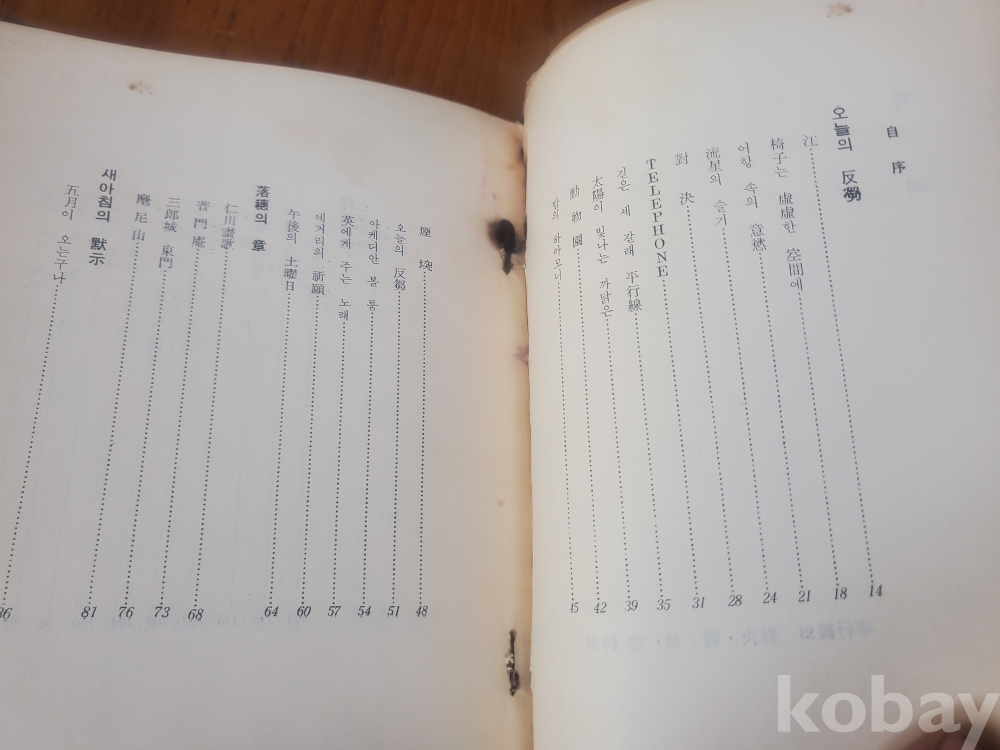 自序
오늘의 反芻
江 14
椅子는 虛虛한 空間에 18
어항 속의 意慾 21
流星의 슬기 24
對決 28
TELEPHONE 31
깊은 세 갈래 平行線 35
太陽이 빛나는 까닭은 39
動物園 42
밤의 하아모니 45
煙堗 48
오늘의 反芻 51
아케디안 볼 룸 54
英에게 주는 노래 57
네거리의 祈願 60
午後의 土曜日 64
落穗의 章
仁川讚歌 68
普門庵 73
三郎城 東門 76
摩尼山 81
새아침의 默示
五月이 오는구나 86
kobay